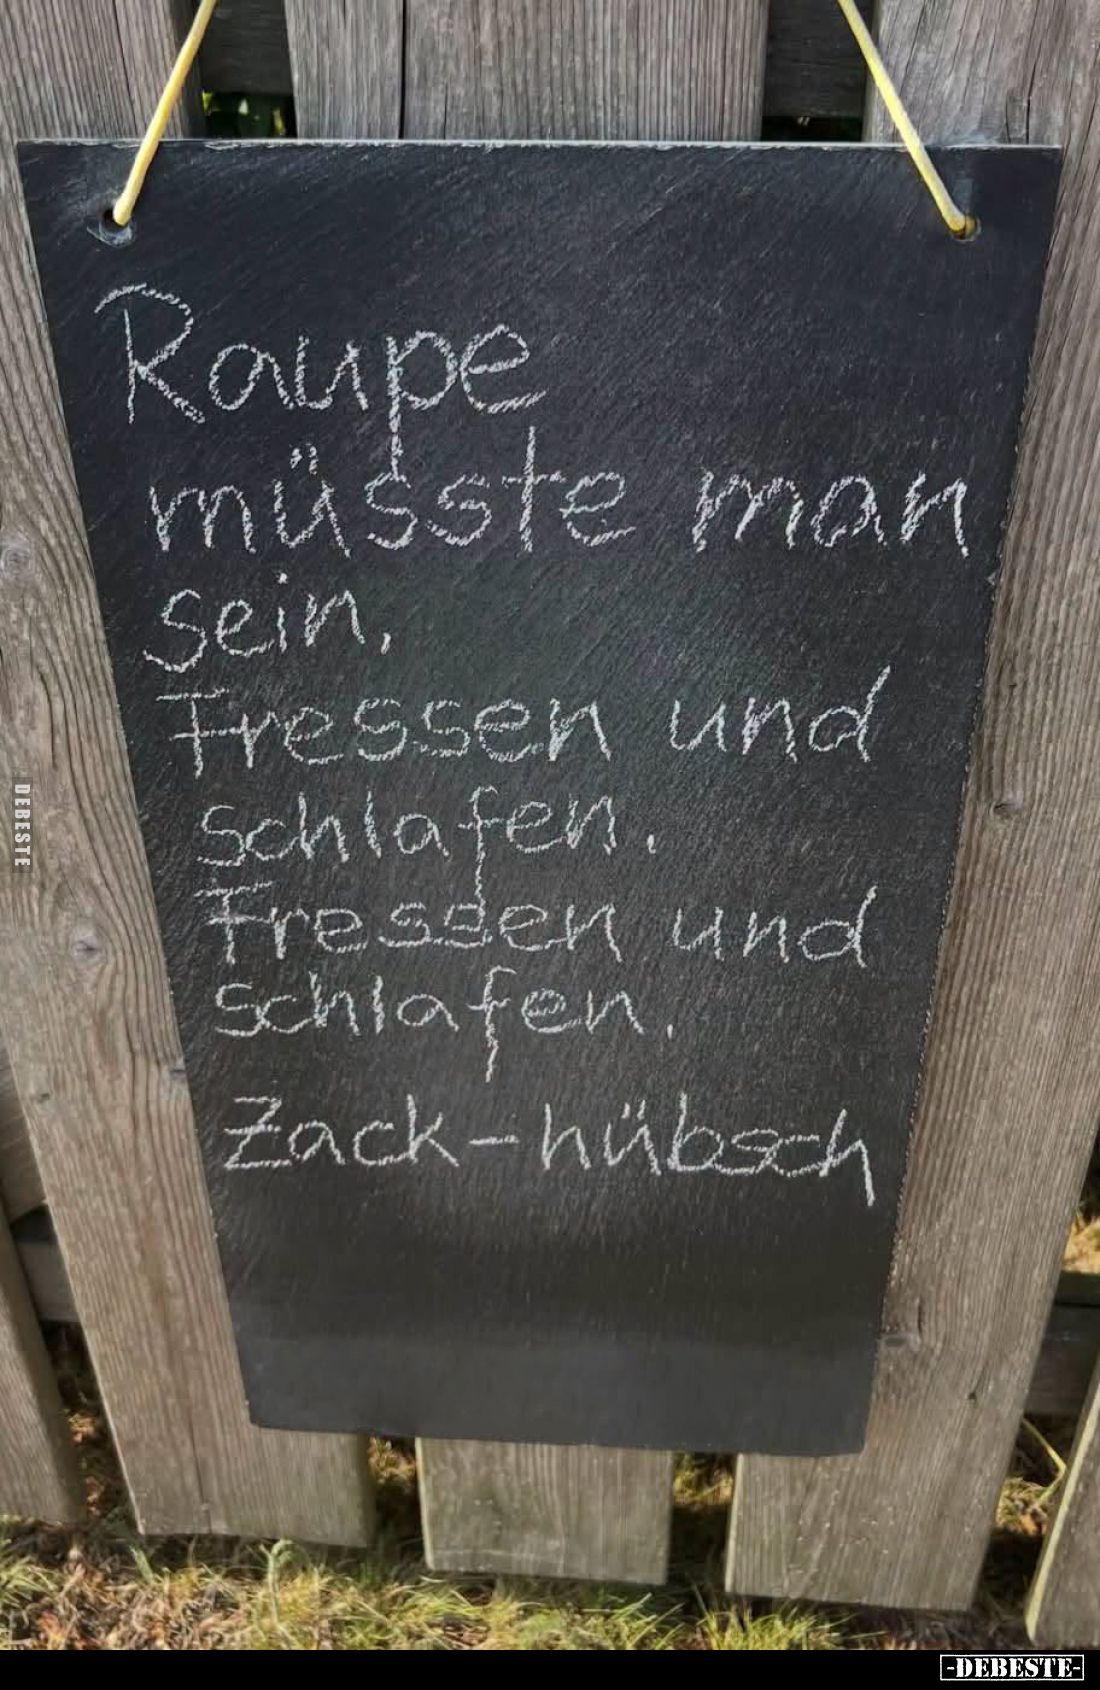 Raupe
müsste man
sein.
Fressen und
schlafen.
Fressen und
schlafen.
Zack-hübsch
DEBESTE
-DEBESTE-